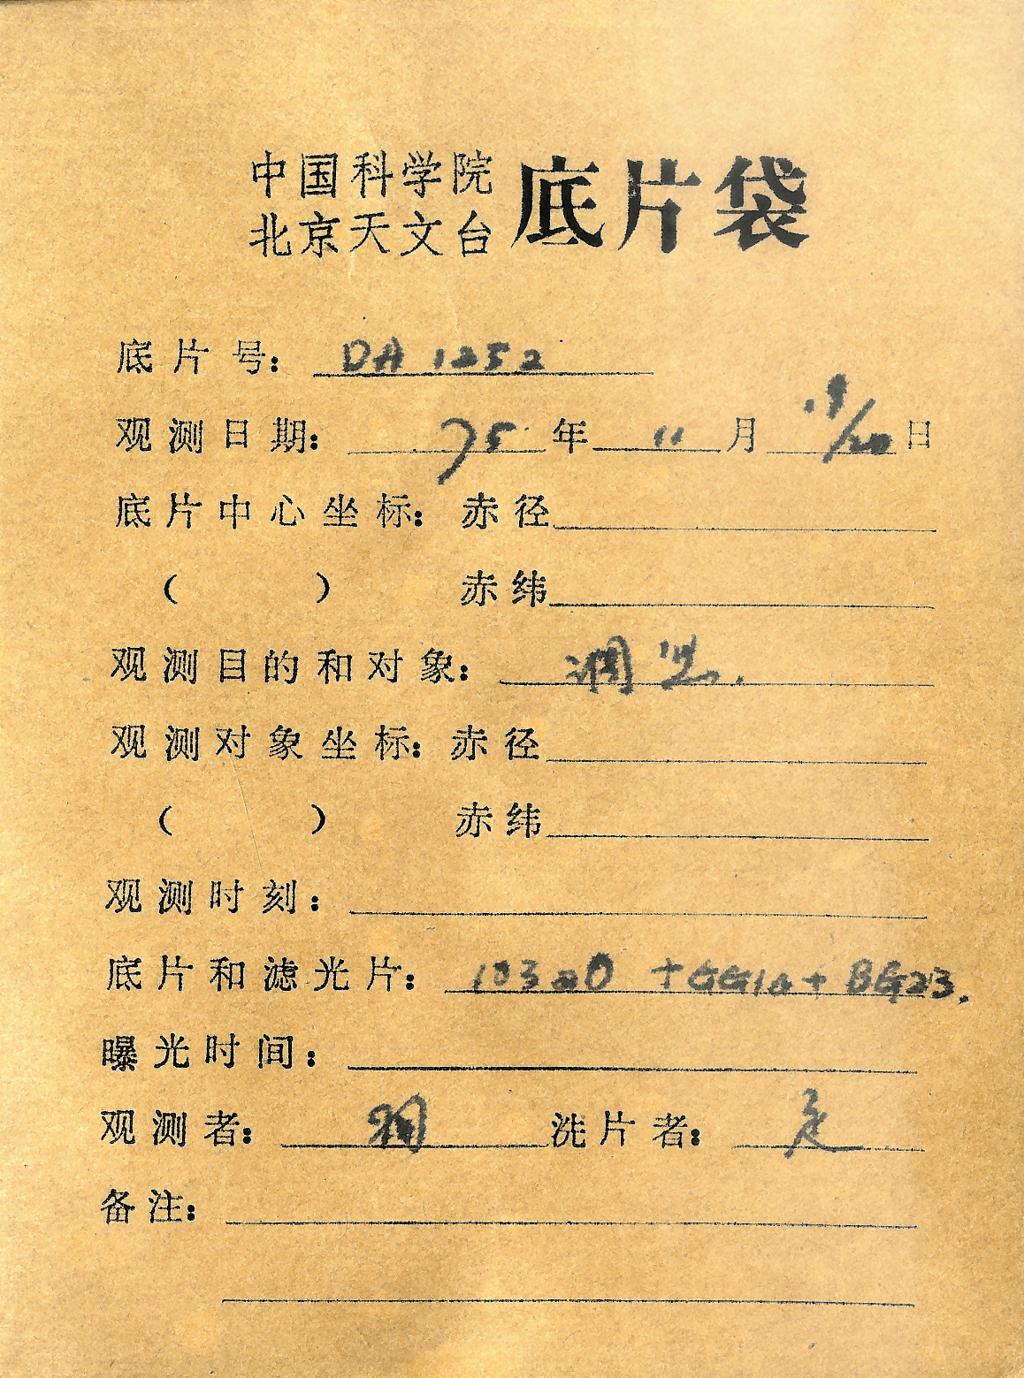 中国科学院
北京天文台 底片袋
底片号： DA 1252
观测日期： 75 年 11 月 19/20 日
底片中心坐标：赤径
（ ） 赤纬
观测目的和对象： 调焦.
观测对象坐标：赤径
（ ） 赤纬
观测时刻：
底片和滤光片： 103aO +GG1a+ BG23.
曝光时间：
观测者： 洗片者：
备注：